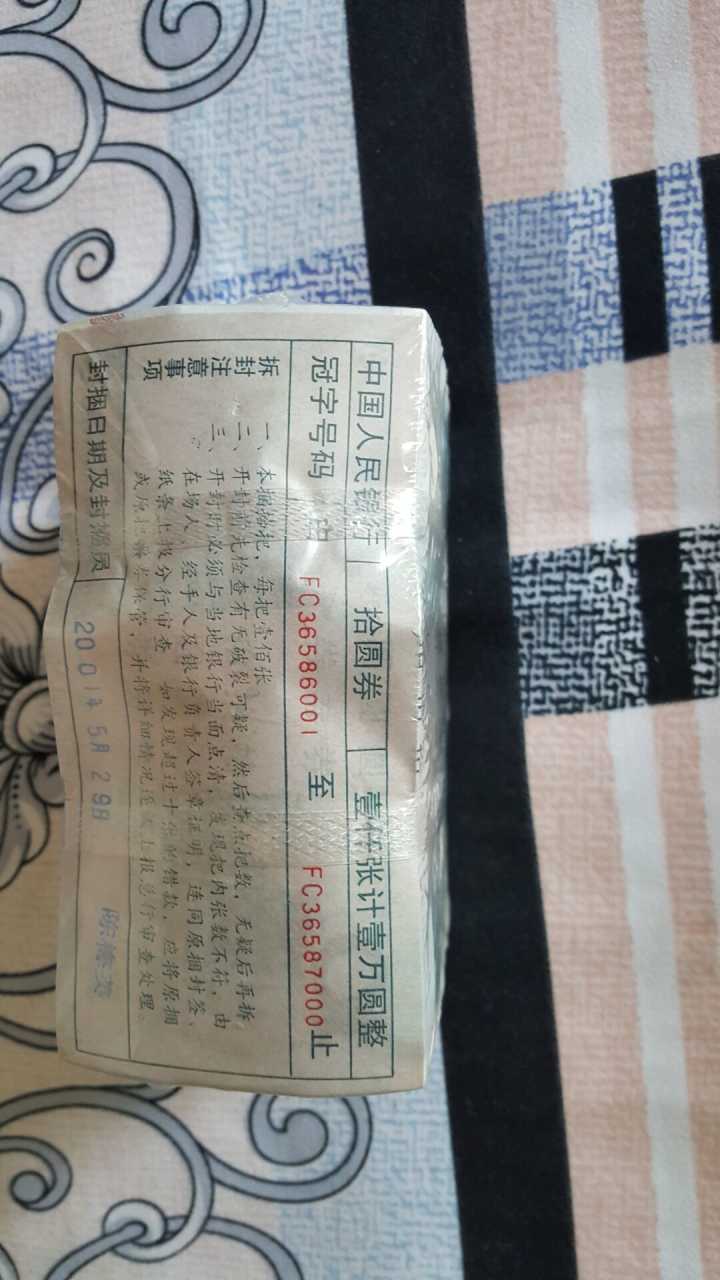 中国人民银行 拾圆券 壹仟张计壹万圆整
冠字号码 由 FC36586001 至 FC36587000止
拆封注意事项
一、本捆拾把，每把壹佰张
二、开封前先检查有无破裂可疑，然后查点把数，无疑后再拆
三、开封时必须与当地银行当面点清，发现把内张数不符，由
在场人、经手人及银行负责人签章证明，连同原捆封签、
纸条上报分行审查。如发现超过十张的错款，应将原捆
或原把 保管，并将详细情况逐级上报总行审查处理。
封捆日期及封捆员 2001年5月29日